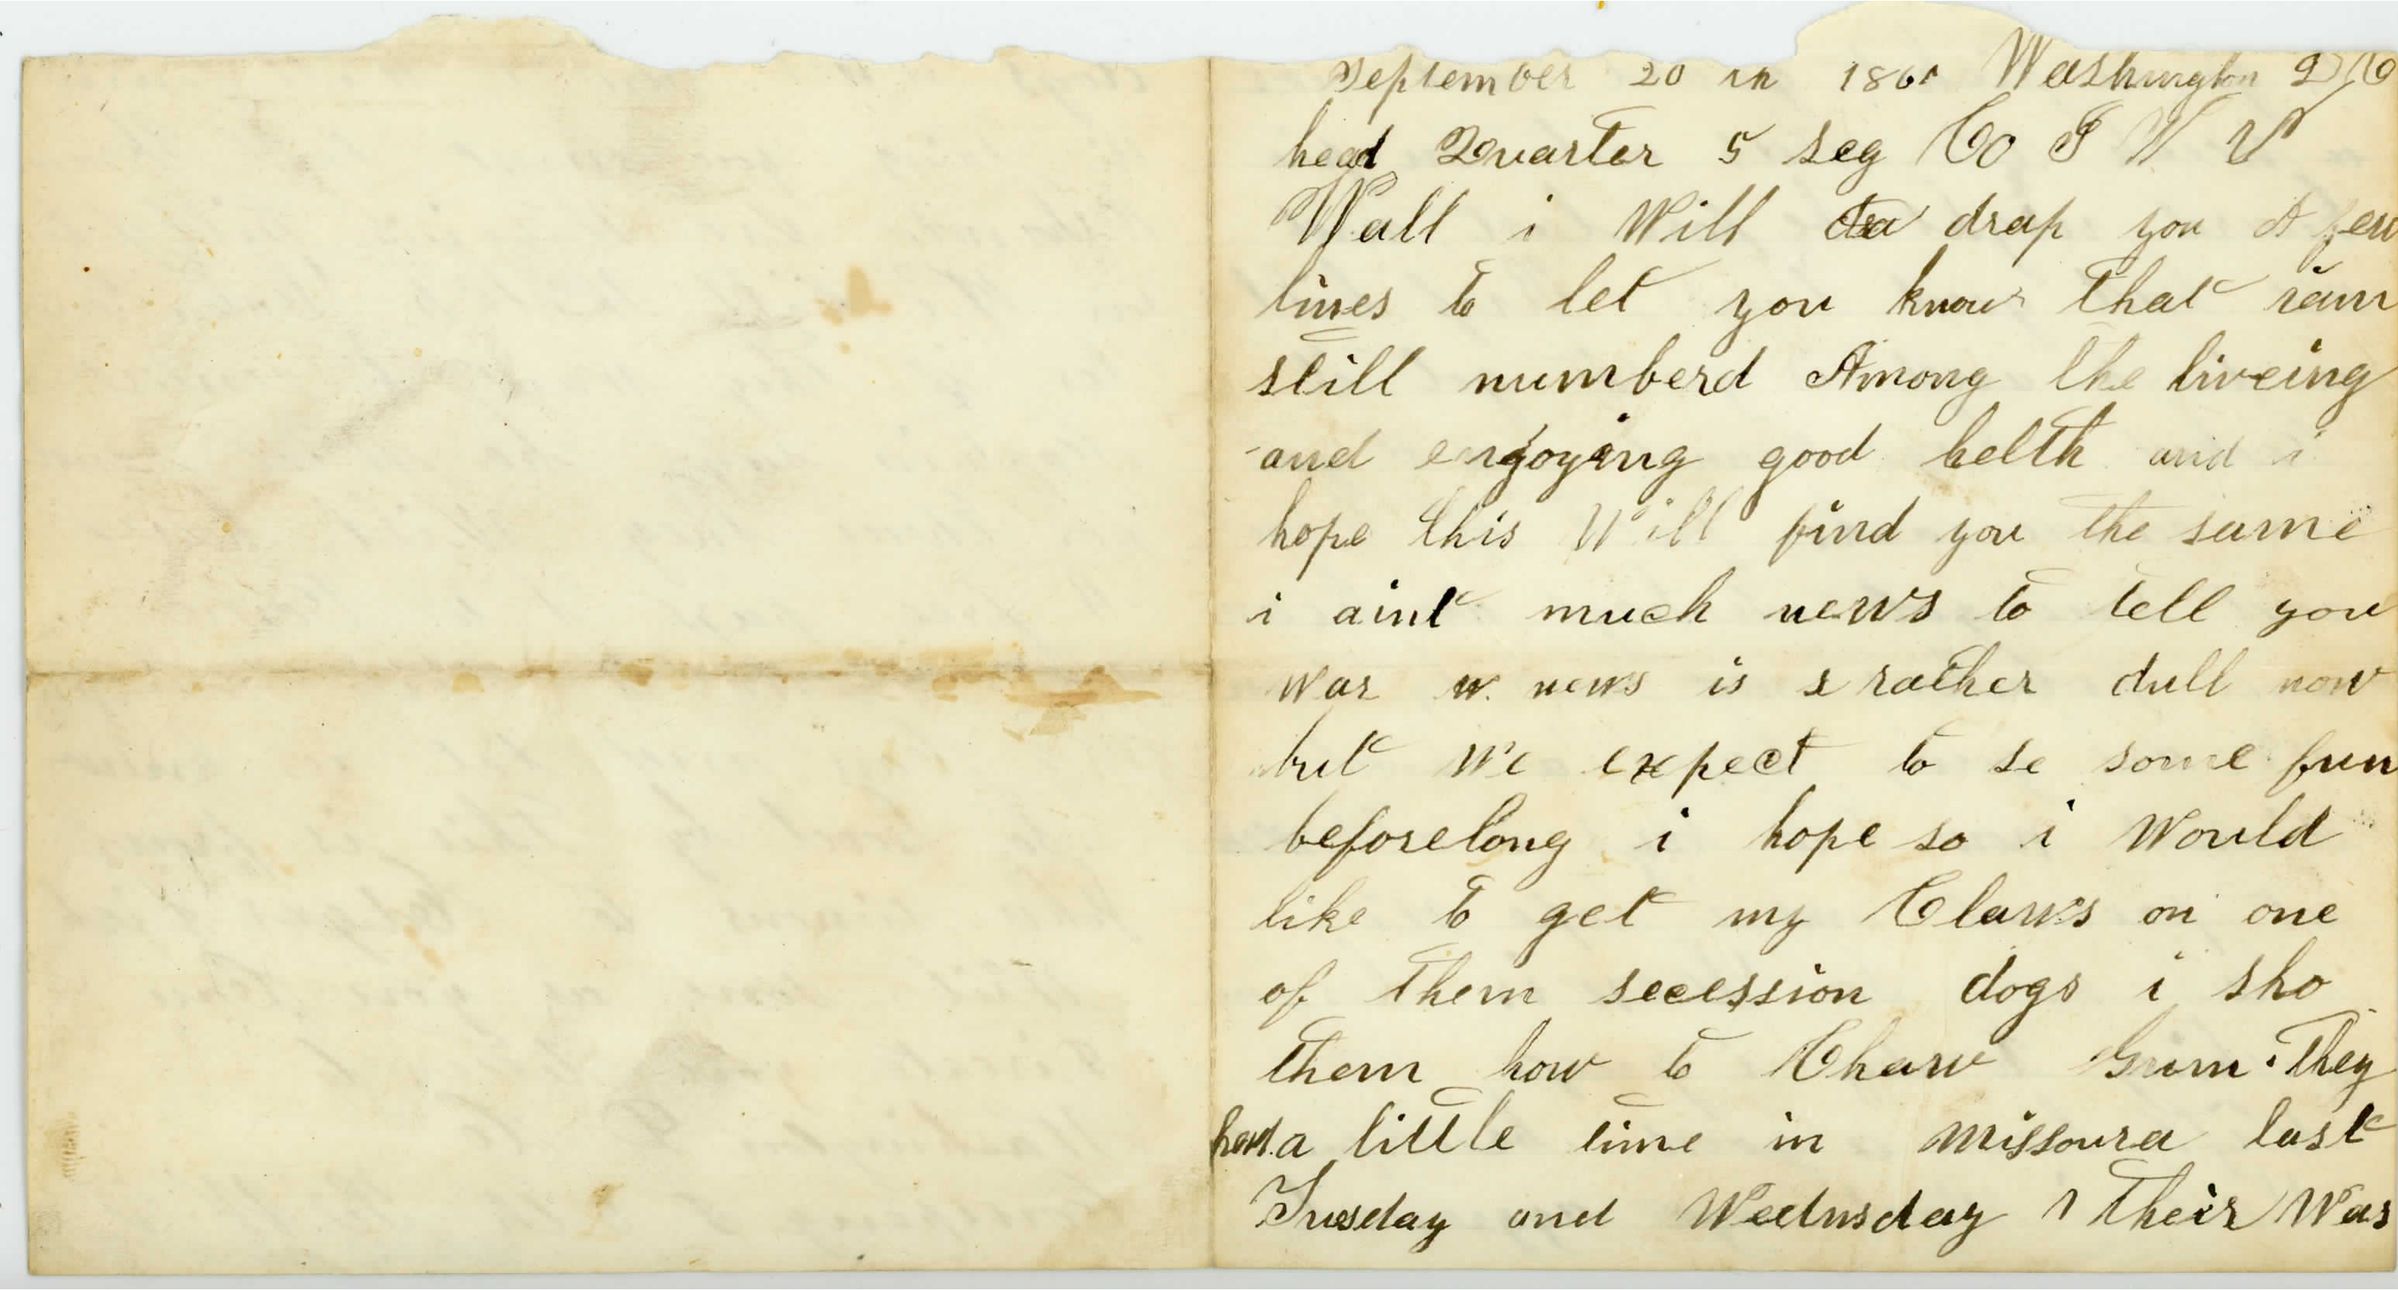 September 20 th 1861 Washington DC
head Quarter 5 reg Co W V
Wall i Will dra drap you A few
lines to let you know that iam
still numberd Among the liveing
and engoying good helth and i
hope this Will find you the same
i aint much news to tell you
war w news is r rather dull now
but We expect to se some fun
beforelong i hope so i Would
like to get my Claws on one
of them secession dogs i sho
them how to Chaw Gum they
had a little time in missoura last
Tuesday and Wednsday their Was